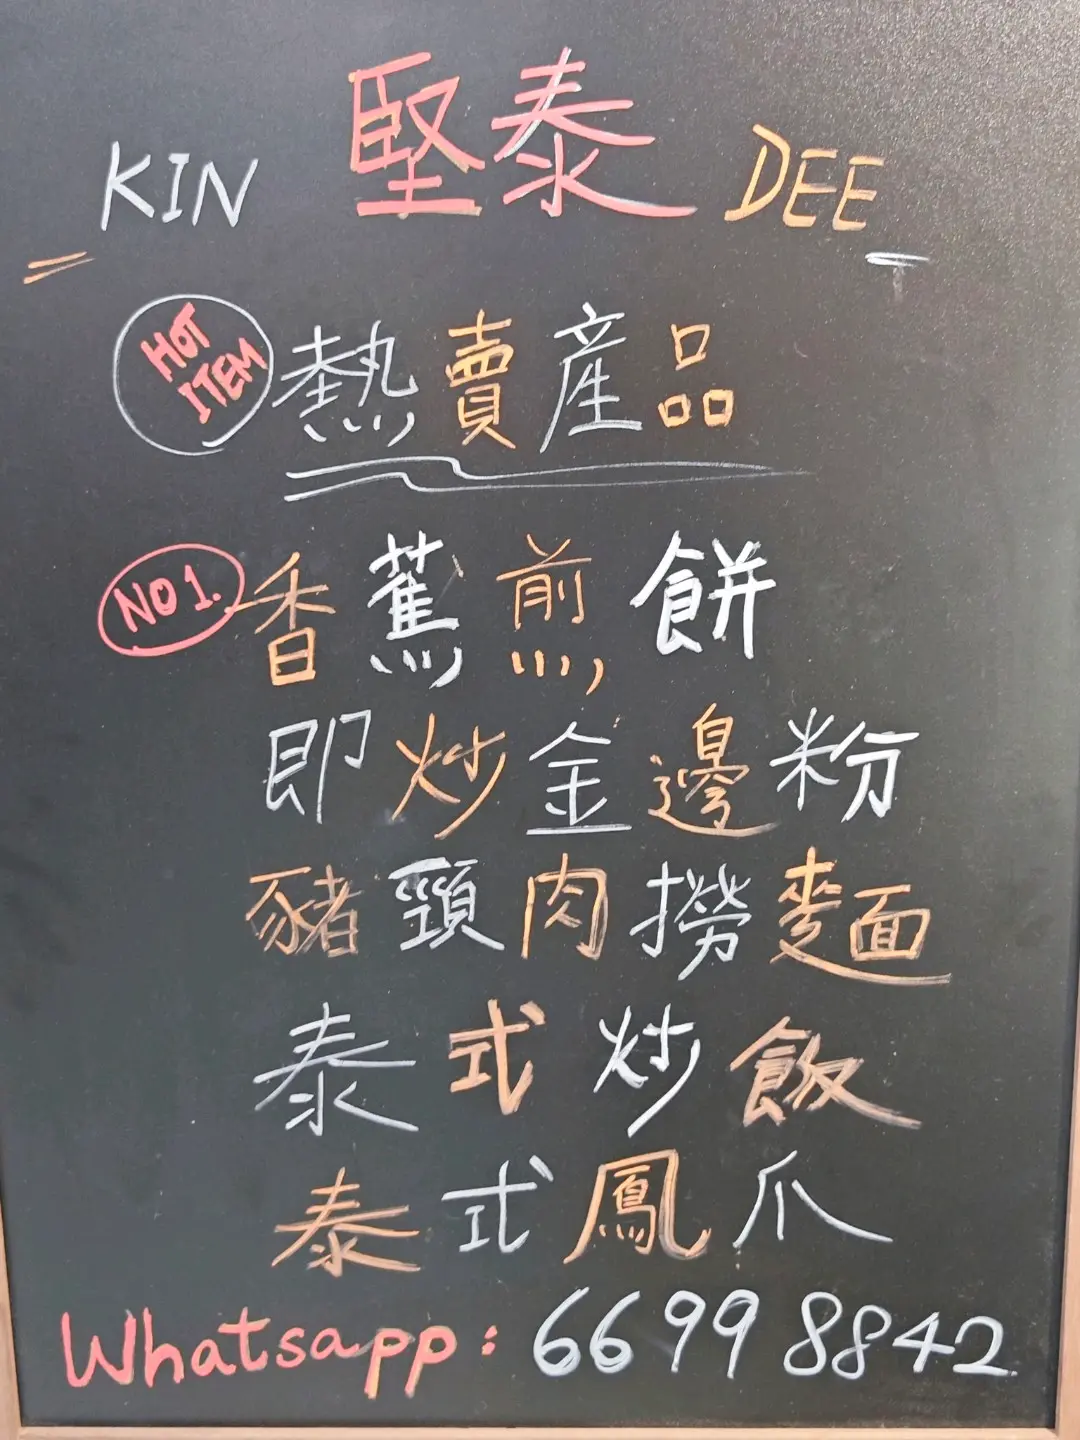 KIN 堅泰 DEE
HOT ITEM 熱賣產品
NO 1. 香蕉煎餅
即炒金邊粉
豬頸肉撈麵
泰式炒飯
泰式鳳爪
Whatsapp: 6699 8842